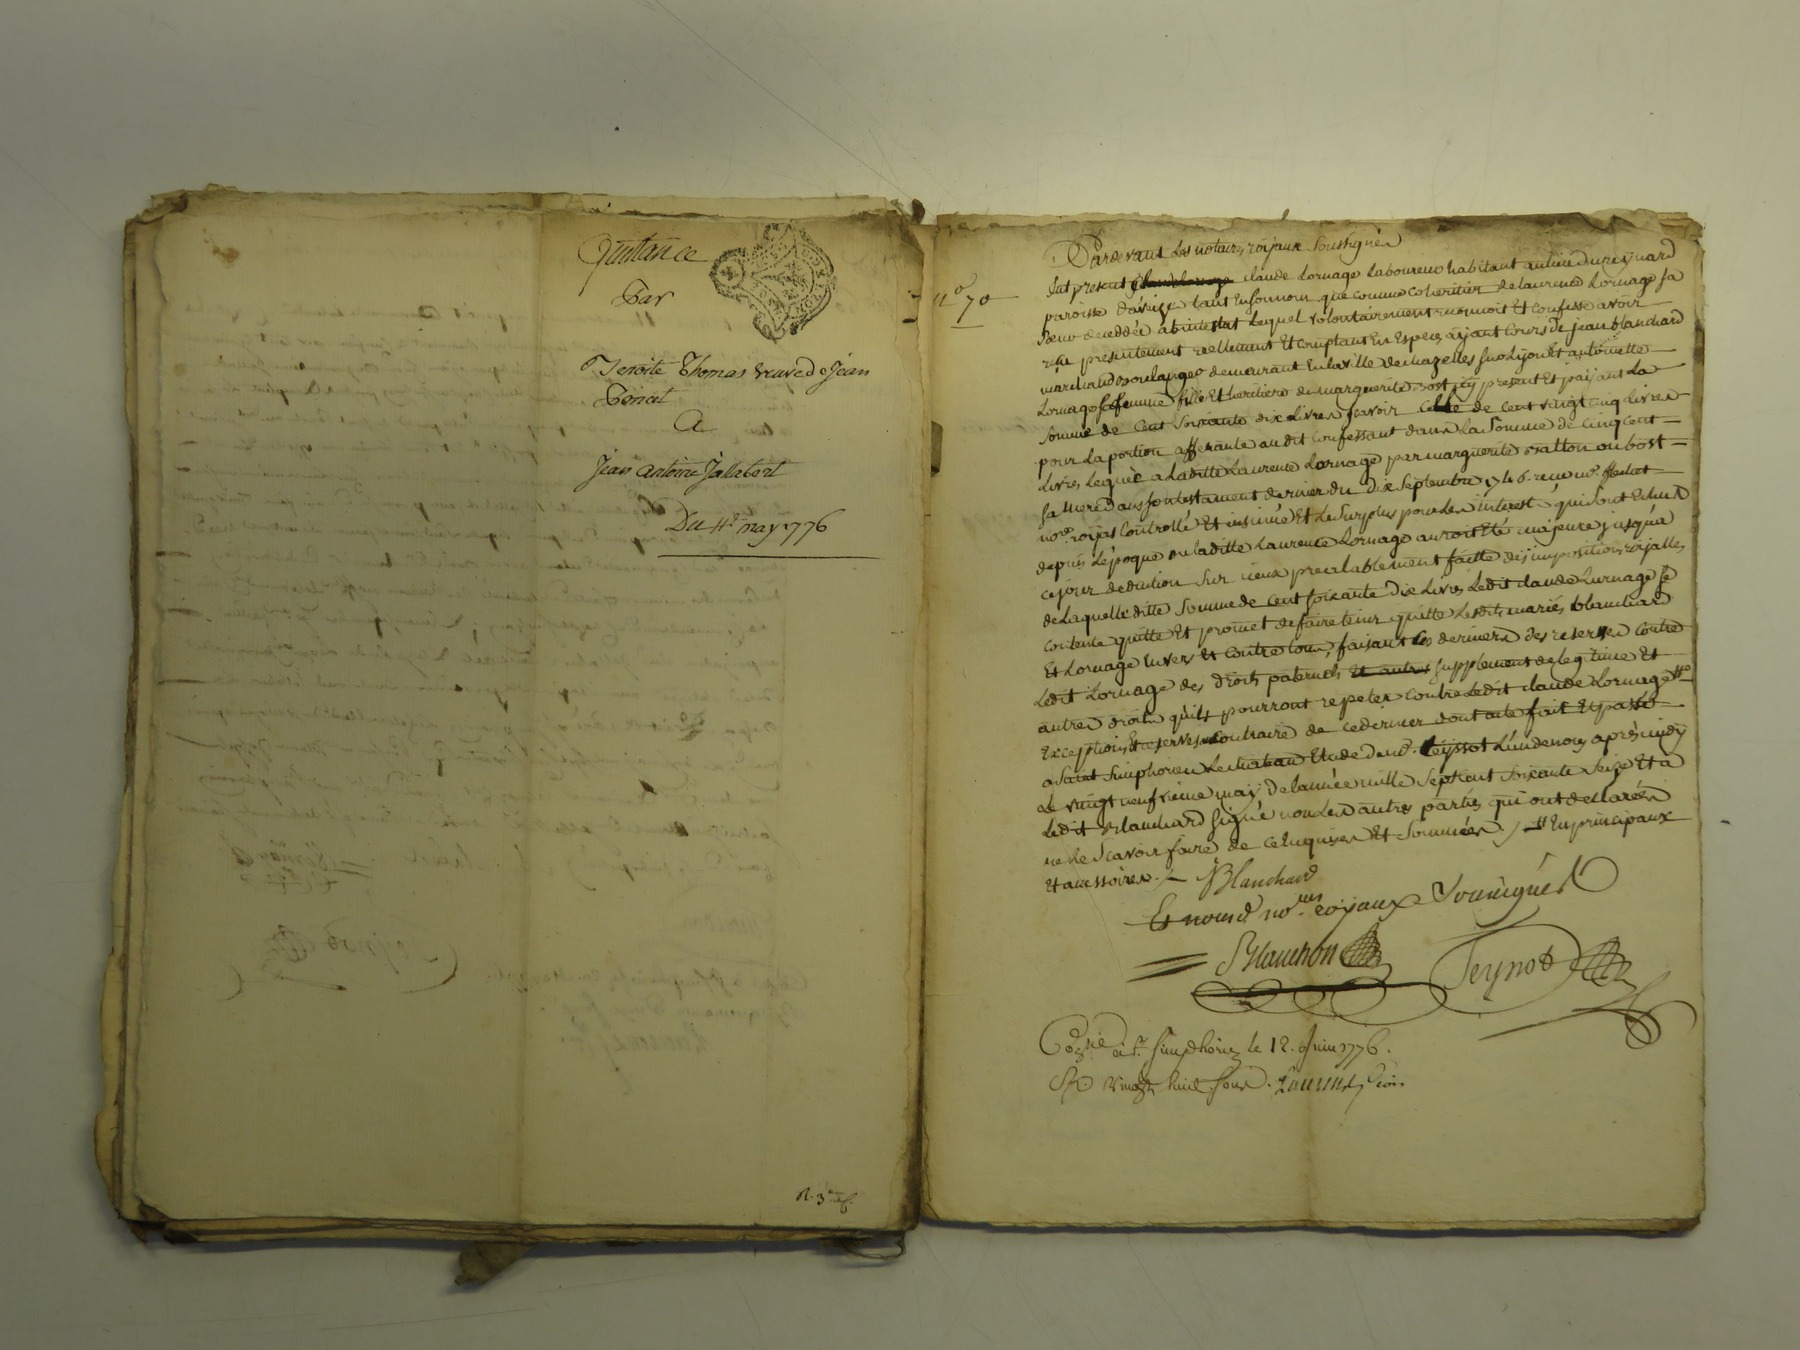 Quittance
Par
Thomas veuve de Jean
Poncet
A
Jean Antoine Jalabert
Du 4e may 1776
n.o 70
Pardevant Les notaires royaux Soussignés
fut present Claude Lornage Laboureur habitant au lieu du
paroisse d'aveize tant En son nom que comme coheritier de Laurence Lornage Sa
Sœur decedée abintestat Lequel volontairement reconnoit Et Confesse avoir
reçu presentement reellement Et Comptant En Especes ayant Cours de jean blanchard
marchand boulanger demeurant En la ville de chazelles Sur Lyon Et antoinette
Lornage Sa femme fille Et heritiere de marguerite present Et payant La
Somme de Cent Soixante dix Livres scavoir Celle de Cent vingt cinq Livres
pour La portion afferante au dit Confessant dans La Somme de cinq Cent
Livres Leguée a Laditte Laurence Lornage par marguerite ou bost
Sa Mere Dans Son testament dernier du Dix Septembre 1746. reçu me.
nore. royal Controllé Et insinué Et Le Surplus pour Les interest qui Sont Echus
depuis L'époque ou laditte Laurence Lornage auroit Eté majeure jusqu'a
ce jour deduction Sur iceux prealablement faitte des impositions royalles
de Laquelle ditte Somme de Cent Soixante Dix Livres Ledit claude Lurnage Se
contente quitte Et promet de faire tenir quitte Lesdits mariés blanchard
Et Lornage Envers Et Contre tous, faisant Les derniers des reserves Contre
Ledit Lornage des droits paternels Et autres Supplement de Legitime Et
autres droits qu'ils pourront repeter Contre Ledit claude Lornage #
Exceptions Et reserves au Contraire de ce dernier dont acte fait Et passé
a Saint Simphorien Le chateau Etude de me. L'un de nous après midy
Le vingt neufvieme may De l'année mille Sept Cent Soixante Seize Et a
Ledit Blanchard Signé non Les autres parties qui ont declarées
ne Le Scavoir faire de ce Enquises Et Sommées ./. # En principaux
Et accessoires ./. JBlanchard
Et nousd. nores royaux Soussignés
Blanchon
Controllé a St. Simphorien le 12. juin 1776.
R. vingt huit Sous. Laurens
R. 3